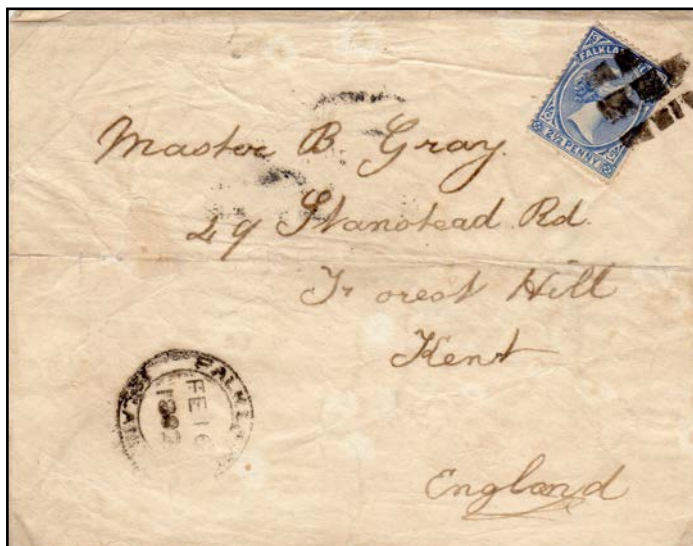 2½ PENNY
Master B Gray.
49 Stanstead Rd.
Forest Hill
Kent
England
FE 16